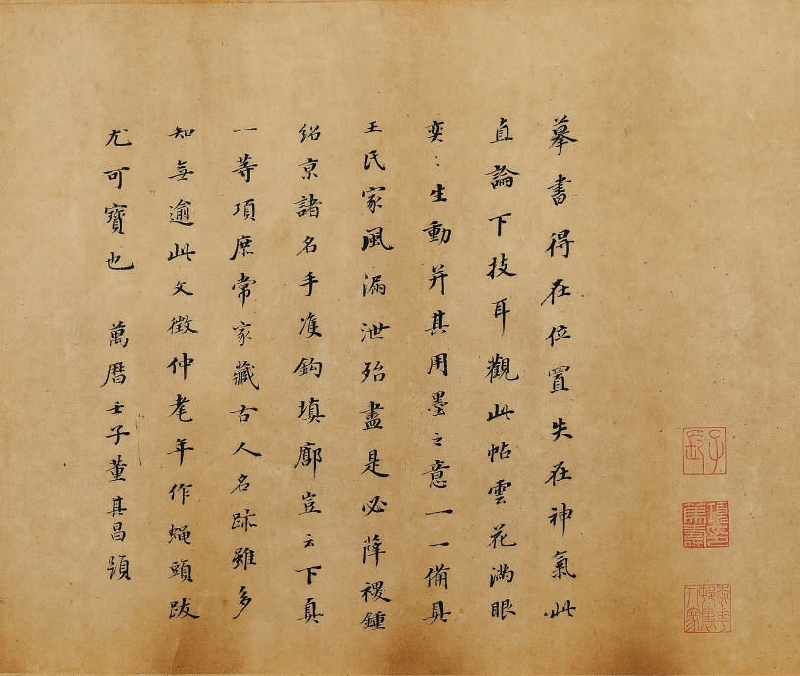 摹書得在位置失在神氣此
直論下技耳觀此帖雲花滿眼
奕〻生動并其用墨之意一一備具
王氏家風漏泄殆盡是必薛稷鍾
紹京諸名手雙鈎填廓豈云下真
一等項庶常家藏古人名跡雖多
知無逾此文徵仲耄年作蝇頭跋
尤可寶也 萬曆壬子董其昌題
子長